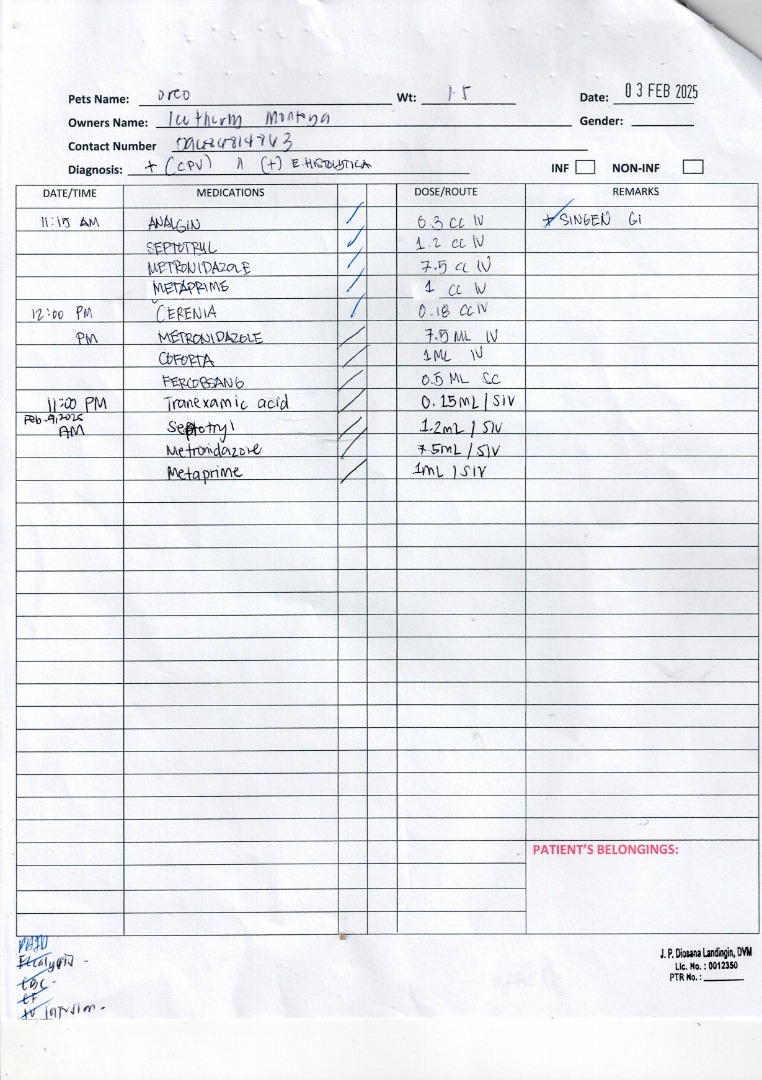 Pets Name: oreo Wt: 1.5 Date: 03 FEB 2025
Owners Name: Montaya Gender:
Contact Number
Diagnosis: + (CPV) (+) E. HISTOLYTICA INF NON-INF
DATE/TIME MEDICATIONS DOSE/ROUTE REMARKS
11:15 AM ANALGIN 0.3 CC IV SINGEN GI
SEPTOTRYL 1.2 CC IV
METRONIDAZOLE 7.5 CC IV
METAPRIME 1 CC IV
12:00 PM CERENIA 0.18 CC IV
PM METRONIDAZOLE 7.5 ML IV
COFORTA 1 ML IV
FERCOBSANG 0.5 ML SC
11:00 PM Tranexamic acid 0.15mL / SIV
Feb. 4, 2025
AM Septotryl 1.2mL / SIV
Metronidazole 7.5mL / SIV
Metaprime 1mL / SIV
PATIENT'S BELONGINGS:
PAID
Fecalysis -
CBC -
CF
IV Infusion -
J. P. Diosana Landingin, DVM
Lic. No. : 0012350
PTR No. :